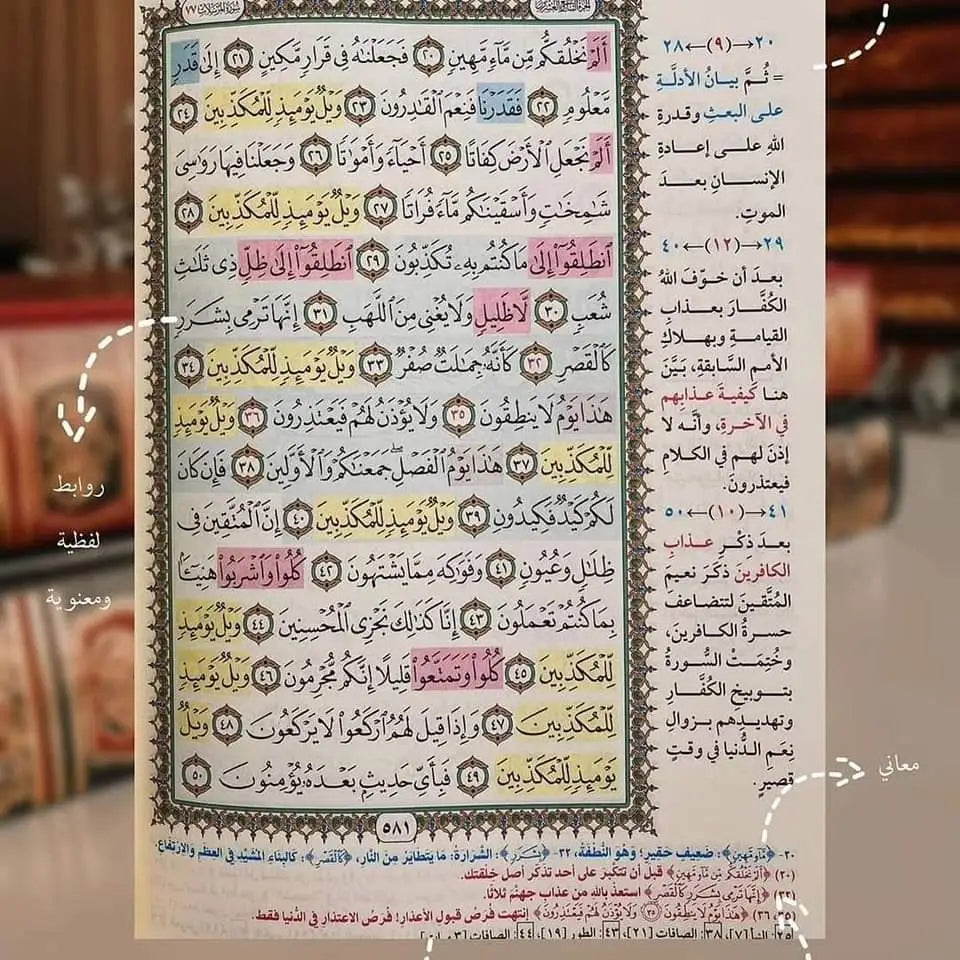 سُورَةُ المُرْسَلَات ٧٧
أَلَمْ نَخْلُقكُّم مِّن مَّآءٍ مَّهِينٍ ٢٠ فَجَعَلْنَٰهُ فِى قَرَارٍ مَّكِينٍ ٢١ إِلَىٰ قَدَرٍ
مَّعْلُومٍ ٢٢ فَقَدَرْنَا فَنِعْمَ ٱلْقَٰدِرُونَ ٢٣ وَيْلٌ يَوْمَئِذٍ لِّلْمُكَذِّبِينَ ٢٤
أَلَمْ نَجْعَلِ ٱلْأَرْضَ كِفَاتًا ٢٥ أَحْيَآءً وَأَمْوَٰتًا ٢٦ وَجَعَلْنَا فِيهَا رَوَٰسِىَ
شَٰمِخَٰتٍ وَأَسْقَيْنَٰكُم مَّآءً فُرَاتًا ٢٧ وَيْلٌ يَوْمَئِذٍ لِّلْمُكَذِّبِينَ ٢٨
ٱنطَلِقُوٓا۟ إِلَىٰ مَا كُنتُم بِهِۦ تُكَذِّبُونَ ٢٩ ٱنطَلِقُوٓا۟ إِلَىٰ ظِلٍّ ذِى ثَلَٰثِ
شُعَبٍ ٣٠ لَّا ظَلِيلٍ وَلَا يُغْنِى مِنَ ٱللَّهَبِ ٣١ إِنَّهَا تَرْمِى بِشَرَرٍ
كَٱلْقَصْرِ ٣٢ كَأَنَّهُۥ جِمَٰلَتٌ صُفْرٌ ٣٣ وَيْلٌ يَوْمَئِذٍ لِّلْمُكَذِّبِينَ ٣٤
هَٰذَا يَوْمُ لَا يَنطِقُونَ ٣٥ وَلَا يُؤْذَنُ لَهُمْ فَيَعْتَذِرُونَ ٣٦ وَيْلٌ يَوْمَئِذٍ
لِّلْمُكَذِّبِينَ ٣٧ هَٰذَا يَوْمُ ٱلْفَصْلِ ۖ جَمَعْنَٰكُمْ وَٱلْأَوَّلِينَ ٣٨ فَإِن كَانَ
لَكُمْ كَيْدٌ فَكِيدُونِ ٣٩ وَيْلٌ يَوْمَئِذٍ لِّلْمُكَذِّبِينَ ٤٠ إِنَّ ٱلْمُتَّقِينَ فِى
ظِلَٰلٍ وَعُيُونٍ ٤١ وَفَوَٰكِهَ مِمَّا يَشْتَهُونَ ٤٢ كُلُوا۟ وَٱشْرَبُوا۟ هَنِيٓـًٔۢا
بِمَا كُنتُمْ تَعْمَلُونَ ٤٣ إِنَّا كَذَٰلِكَ نَجْزِى ٱلْمُحْسِنِينَ ٤٤ وَيْلٌ يَوْمَئِذٍ
لِّلْمُكَذِّبِينَ ٤٥ كُلُوا۟ وَتَمَتَّعُوا۟ قَلِيلًا إِنَّكُم مُّجْرِمُونَ ٤٦ وَيْلٌ يَوْمَئِذٍ
لِّلْمُكَذِّبِينَ ٤٧ وَإِذَا قِيلَ لَهُمُ ٱرْكَعُوا۟ لَا يَرْكَعُونَ ٤٨ وَيْلٌ
يَوْمَئِذٍ لِّلْمُكَذِّبِينَ ٤٩ فَبِأَىِّ حَدِيثٍۭ بَعْدَهُۥ يُؤْمِنُونَ ٥٠
٥٨١
٢٠→(٩)←٢٨
= ثُمَّ بيانُ الأدلَّةِ
على البعثِ وقدرةِ
اللهِ على إعادةِ
الإنسانِ بعدَ
الموتِ.
٢٩→(١٢)←٤٠
بعدَ أن خوَّفَ اللهُ
الكُفَّارَ بعذابِ
القيامةِ وبهلاكِ
الأممِ السَّابقةِ، بَيَّنَ
هنا كيفيةَ عذابِهم
في الآخرةِ، وأنَّه لا
إذنَ لهم في الكلامِ
فيعتذرونَ.
٤١→(١٠)←٥٠
بعدَ ذكْرِ عذابِ
الكافرينَ ذكَرَ نعيمَ
المُتَّقينَ لتتضاعفَ
حسرةُ الكافرينَ،
وخُتِمَتْ السُّورةُ
بتوبيخِ الكُفَّارِ
وتهديدِهم بزوالِ
نِعَمِ الدُّنيا في وقتٍ
قصيرٍ.
روابط
لفظية
ومعنوية
معاني
٢٠- ﴿مَّآءٍ مَّهِينٍ﴾: ضَعِيفٍ حَقِيرٍ؛ وَهُوَ النُّطْفَةُ، ٣٢- ﴿بِشَرَرٍ﴾: الشَّرَارَةُ: مَا يَتَطَايَرُ مِنَ النَّارِ، ﴿كَٱلْقَصْرِ﴾: كَالبِنَاءِ المُشَيَّدِ فِي العِظَمِ وَالارْتِفَاعِ.
(٢٠) ﴿أَلَمْ نَخْلُقكُّم مِّن مَّآءٍ مَّهِينٍ﴾ قبل أن تتكبرَ على أحد تذكر أصل خِلقتك.
(٣٢) ﴿إِنَّهَا تَرْمِى بِشَرَرٍ كَٱلْقَصْرِ﴾ استعذ بالله من عذاب جهنَّم ثلاثًا.
(٣٥، ٣٦) ﴿هَٰذَا يَوْمُ لَا يَنطِقُونَ ٣٥ وَلَا يُؤْذَنُ لَهُمْ فَيَعْتَذِرُونَ﴾ انتهت فُرَصُ قبولِ الأعذارِ! فُرَصُ الاعتذارِ في الدُّنيا فقط.
٢٥: النبأ [٢٧]، ٣٨: الصافات [٢١]، ٤٣: الطور [١٩]، ٤٤: الصافات